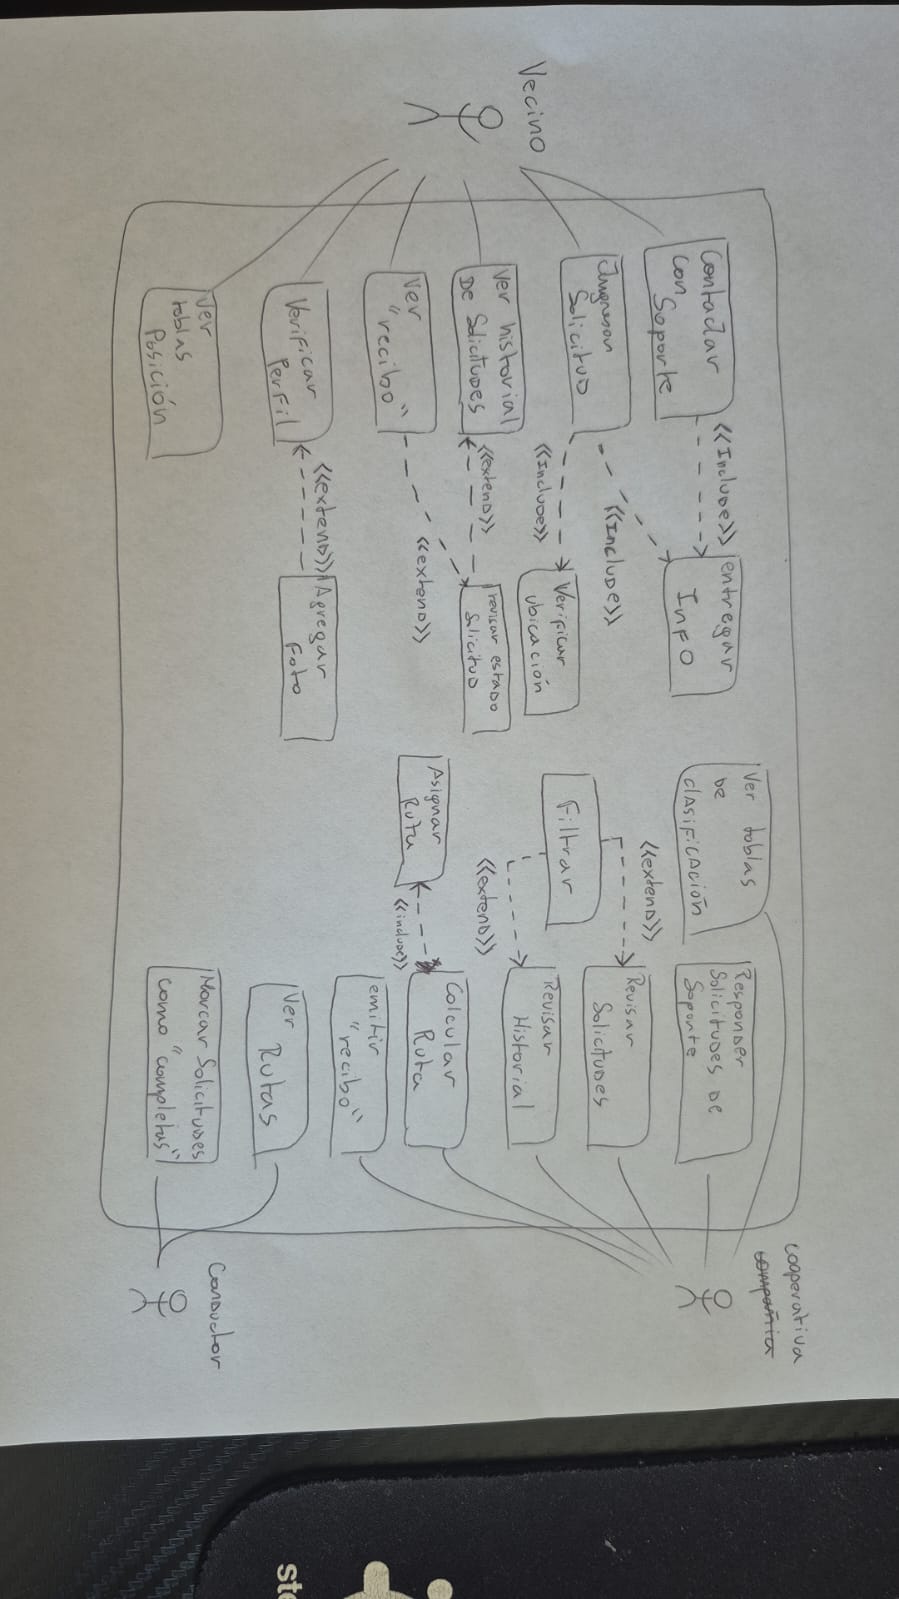 Vecino
Contactar
con
Soporte
<<Include>>
entregar
Info
Ingresar
Solicitud
<<Include>>
<<Include>>
Verificar
ubicación
Ver historial
De Solicitudes
<<extend>>
revisar estado
Solicitud
Ver
"recibo"
<<extend>>
Verificar
Perfil
<<extend>>
Agregar
Foto
Ver
tablas
Posición
Ver tablas
De
clasificación
Responder
Solicitudes De
Soporte
<<extend>>
Revisar
Solicitudes
Filtrar
<<extend>>
Revisar
Historial
Asignar
Ruta
<<include>>
Calcular
Ruta
emitir
"recibo"
Ver Rutas
Marcar Solicitudes
como "completas"
cooperativa
compañia
Conductor
ste